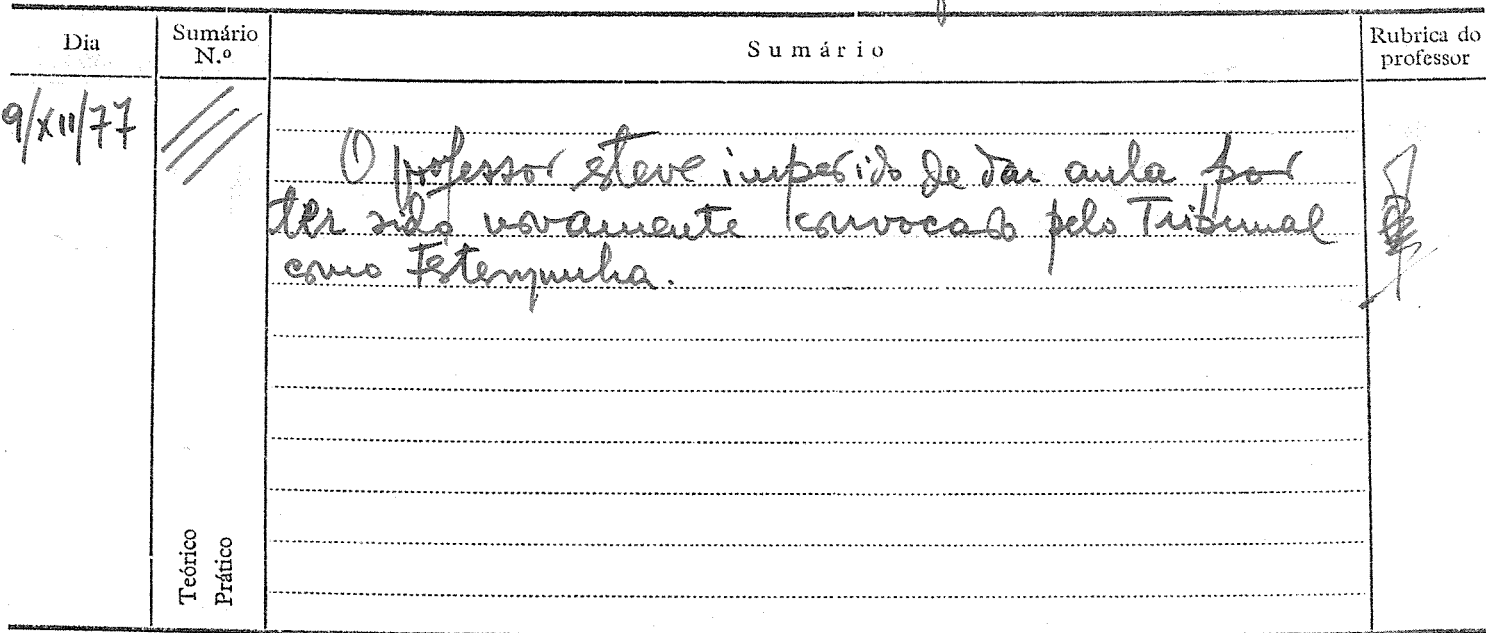 Dia
Sumário N.º
Sumário
Rubrica do professor
9/XII/77
O professor esteve impedido de dar aula por
ter sido novamente convocado pelo Tribunal
como Testemunha.
Teórico
Prático